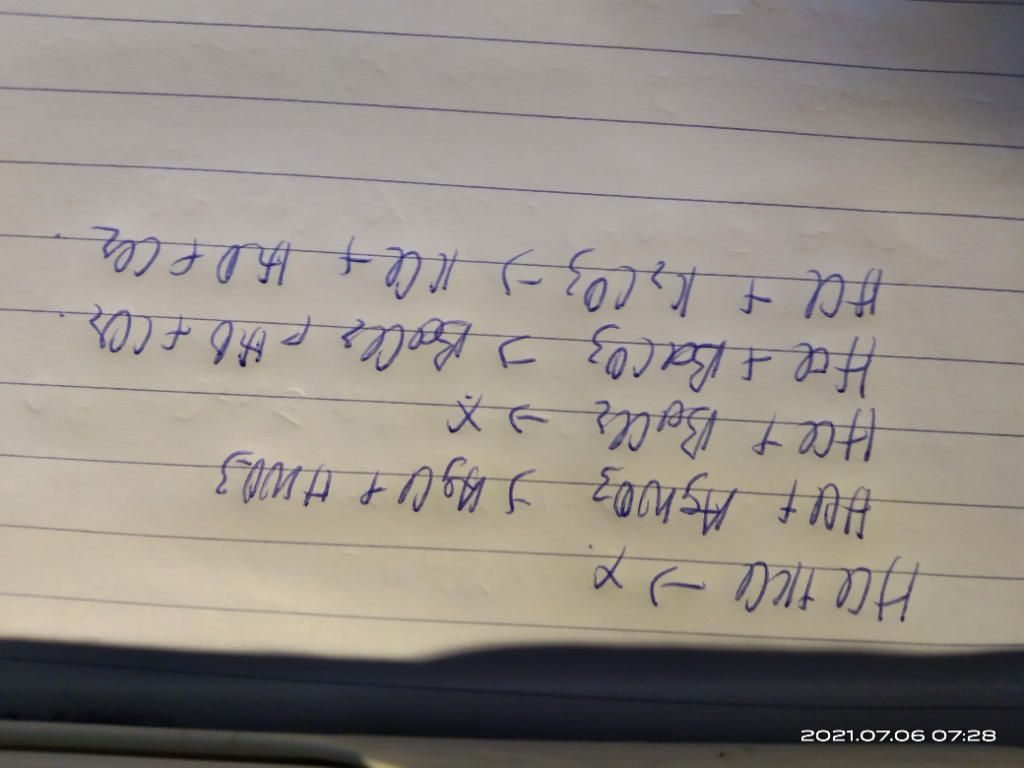 HCl + KCl → x
HCl + AgNO₃ → AgCl + HNO₃
HCl + BaCl₂ → x
HCl + BaCO₃ → BaCl₂ + H₂O + CO₂
HCl + K₂CO₃ → KCl + H₂O + CO₂
2021.07.06 07:28